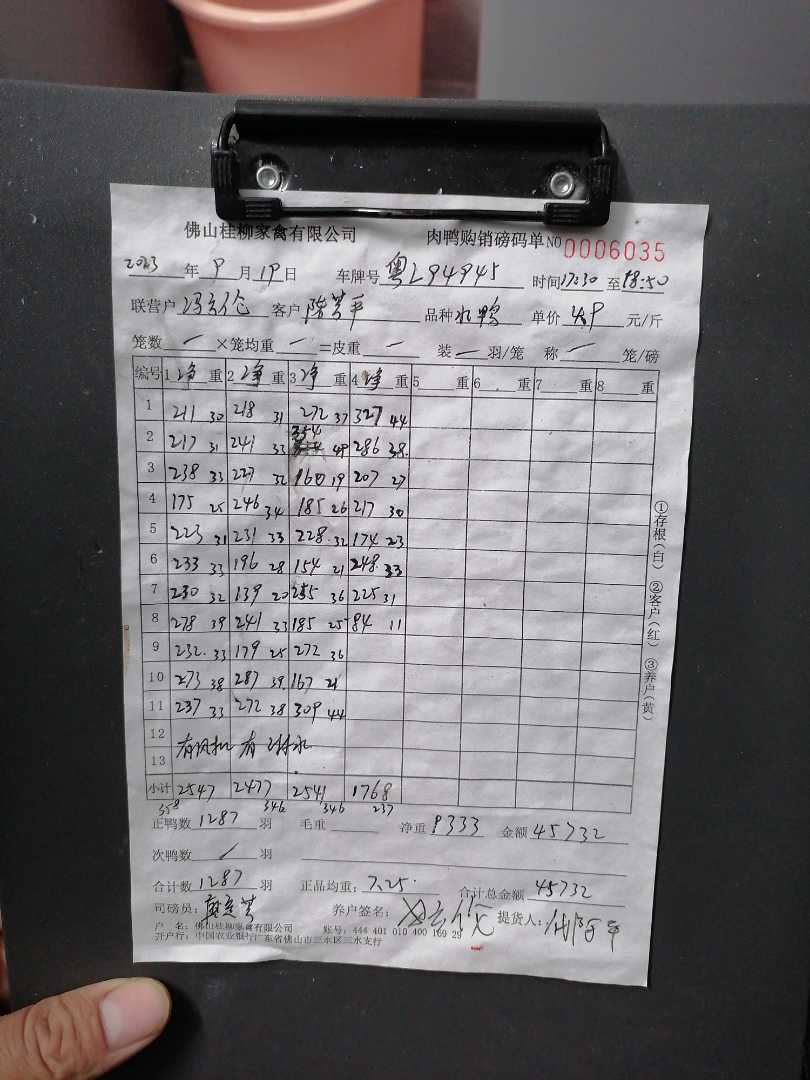 佛山桂柳家禽有限公司 肉鸭购销磅码单 NO 0006035
2023 年 9 月 19 日 车牌号 粤L94945 时间 17:30 至 18:50
联营户 冯玄伦 客户 陈 平 品种 水鸭 单价 4.9 元/斤
笼数 一 ×笼均重 一 =皮重 一 装 一 羽/笼 称 一 笼/磅
编号 1 净 重 2 净 重 3 净 重 4 净 重 5 重 6 重 7 重 8 重
1 211 30 218 31 272 37 327 44
2 217 31 241 33 354 49 286 38
3 238 33 227 32 160 19 207 27
4 175 25 246 34 185 26 217 30
5 223 31 231 33 228 32 174 23
6 233 33 196 28 154 21 248 33
7 230 32 139 20 255 36 225 31
8 278 39 241 33 185 25 84 11
9 232 33 179 25 272 36
10 273 38 287 39 167 21
11 237 33 272 38 309 44
12
13 有风机 有淋水
小计 2547 2477 2541 1768
358 346 346 237
正鸭数 1287 羽 毛重 净重 9333 金额 45732
次鸭数 / 羽
合计数 1287 羽 正品均重: 7.25 合计总金额 45732
司磅员: 养户签名: 提货人:
户 名: 佛山桂柳家禽有限公司 账号: 444 401 010 400 169 29
开户行: 中国农业银行广东省佛山市三水区三水支行
①存根(白) ②客户(红) ③养户(黄)